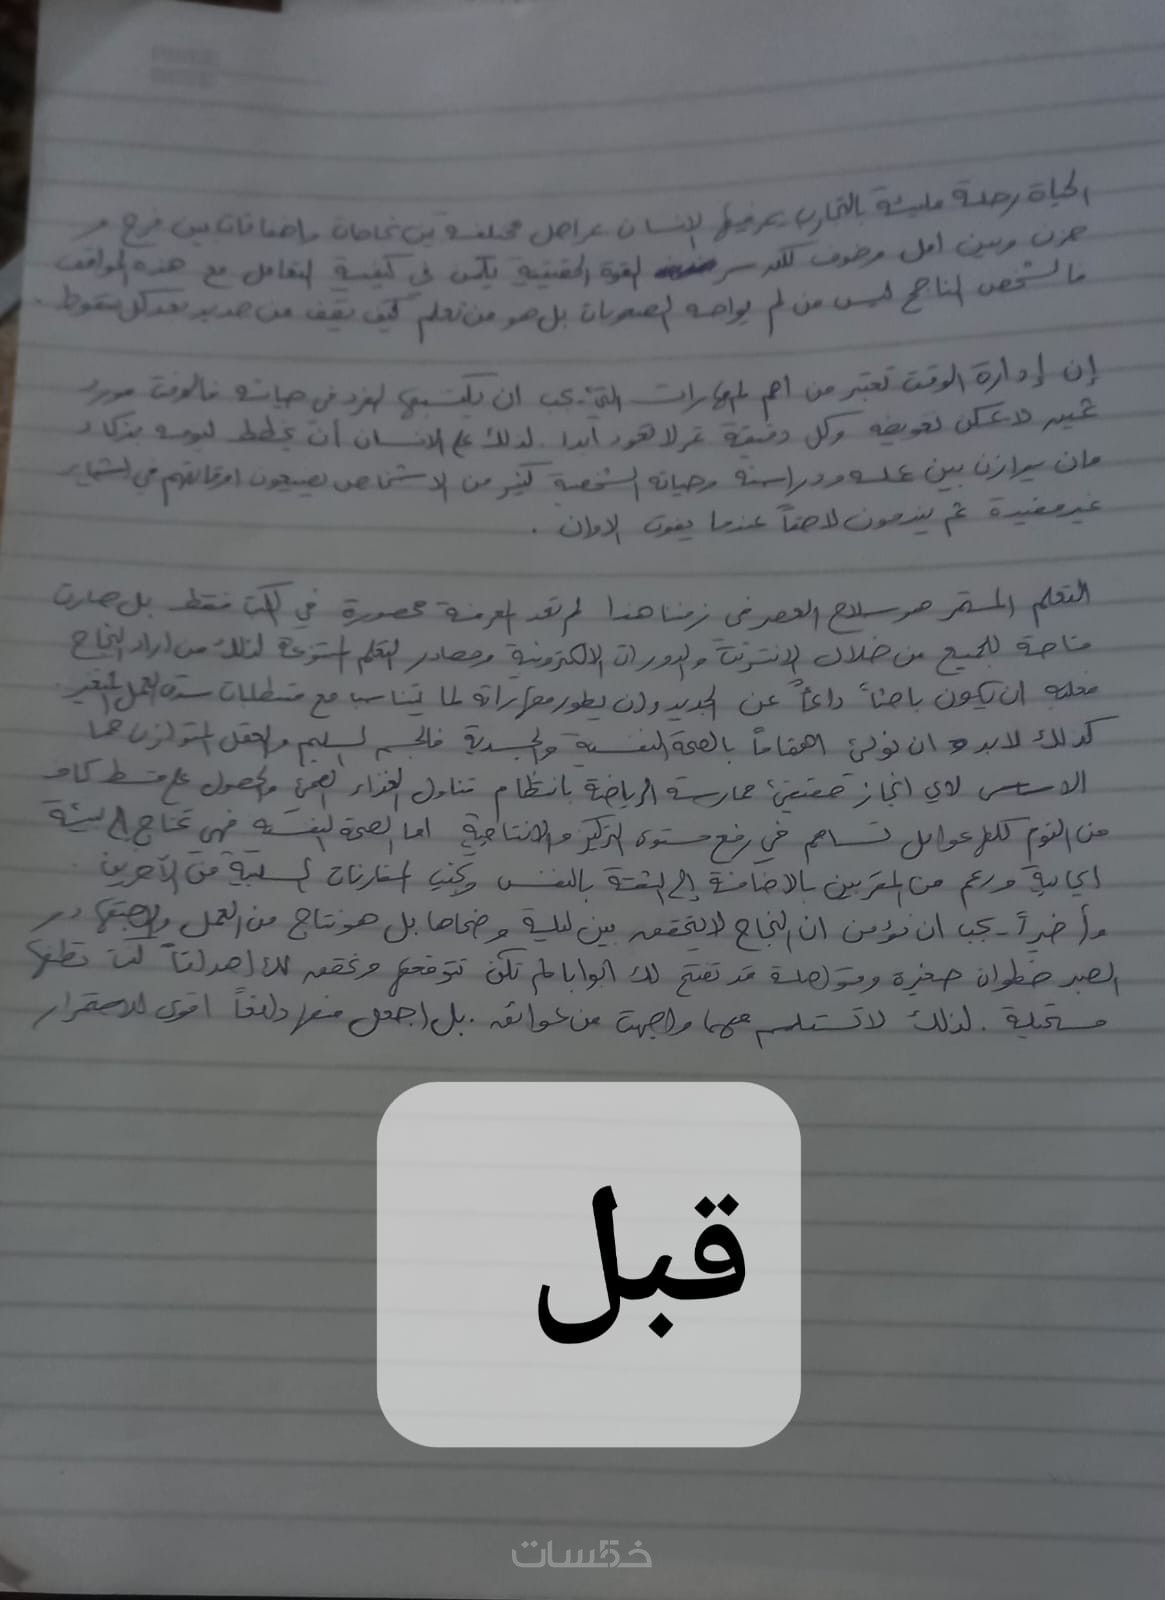 الحياة رحلة مليئة بالتجارب يمر فيها الإنسان بمراحل مختلفة بين نجاحات واخفاقات بين فرح و
حزن وبين امل وخوف لكن سر القوة الحقيقية يكمن في كيفية التعامل مع هذه المواقف
فالشخص الناجح ليس من لم يواجه الصعوبات بل هو من تعلم كيف يقف من جديد بعد كل سقوط .
إن إدارة الوقت تعتبر من أهم المهارات التي يجب ان يكتسبها الفرد في حياته فالوقت مورد
ثمين لا يمكن تعويضه وكل دقيقة تمر لا تعود أبدا . لذلك على الانسان أن يخطط ليومه بذكاء
وان يوازن بين عمله ودراسته وحياته الشخصية كثير من الاشخاص يضيعون اوقاتهم في
غير مفيدة ثم يندمون لاحقاً عندما يفوت الاوان .
التعلم المستمر هو سلاح العصر في زمننا هذا لم تعد المعرفة محصورة في الكتب فقط بل صارت
متاحة للجميع من خلال الإنترنت والدورات الالكترونية ومصادر التعلم المتنوعة لذلك من اراد النجاح
فعليه ان يكون باحثاً دائماً عن الجديد وان يطور مهاراته لما يتناسب مع متطلبات سوق العمل المتغير
كذلك لابد ان نولي اهتماماً بالصحة النفسية والجسدية فالجسم السليم والعقل المتوازن هما
الاساس لاي انجاز حقيقي ممارسة الرياضة بانتظام تناول الغذاء الصحي والحصول على قسط كاف
من النوم كلها عوامل تساهم في رفع مستوى التركيز والانتاجية اما الصحة النفسية فهي تحتاج الى بيئة
ايجابية ودعم من المقربين بالاضافة إلى الثقة بالنفس وتجنب المقارنات السلبية مع الآخرين .
وأخيراً يجب ان نؤمن ان النجاح لا يتحقق بين ليلة وضحاها بل هو نتاج من العمل والاجتهاد و
الصبر خطوات صغيرة ومتواصلة قد تفتح لك ابوابا لم تكن تتوقعها وتحقق لك اهدافاً كنت تظنها
مستحيلة . لذلك لا تستسلم مهما واجهت من عوائق . بل اجعل منها دافعاً اقوى للاستمرار
قبل
خمسات